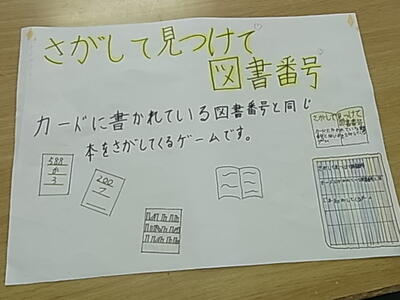 さがして見つけて
図書番号
カードに書かれている図書番号と同じ
本をさがしてくるゲームです。
588
か
3
200
フ
さがして見つけて
図書番号